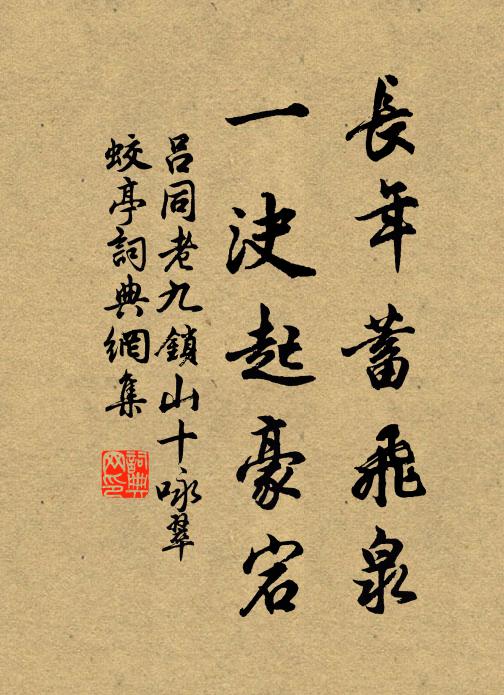 長年蓄飛泉
一決起豪宕
呂同老九鎖山十咏翠
蛟亭詞典網集
詞典网印